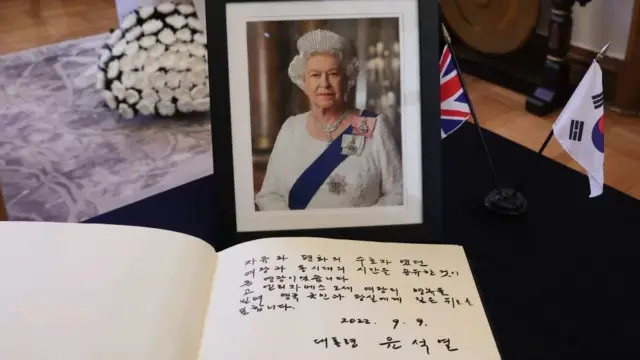 자유와 평화의 수호자였던
여왕과 동시대의 시간을 공유한 것이
큰 영광이었습니다
고 엘리자베스 2세 여왕의 명복을
빌며 영국 국민과 왕실에게 깊은 위로를
표합니다.
2022. 9. 9.
대통령 윤석열